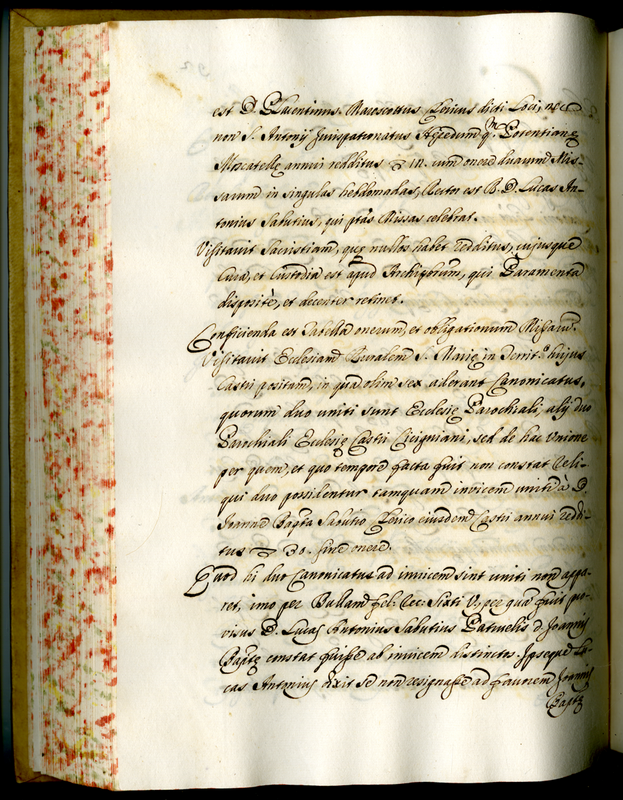 est D. Valentinus Marescottus Clericus dicti Loci, nec
non S. Antonij Jurispatronatus Hęredum qm. Potentianę
Moscatellę annui redditus 10. cum onere duarum Mis-
sarum in singulas hebdomadas, Rector est R. D. Lucas An-
tonius Salutius, qui ptãs Missas celebrat.
Visitavit Sacristiam, quę nullos habet redditus, cujusque
Cura, et Custodia est apud Archipbrum, qui Paramenta
disposite, et decenter retinet.
Conficienda est Tabella onerum, et obligationum Missarũ.
Visitavit Ecclesiam Ruralem S. Marię in Territ.o hujus
Castri positam, in qua olim sex aderant Canonicatus,
quorum duo uniti sunt Ecclesię Parochiali, alij duo
Parochiali Ecclesię Castri Cicigniani, sed de hac Unione
per quem, et quo tempore facta fuit non constat Reli-
qui duo possidentur tamquam invicem uniti à D.
Joanne Bapta Salutio Clerico eiusdem Castri annui reddi-
tus 30. sine onere.
Quod hi duo Canonicatus ad invicem sint uniti non appa-
ret, imo per Bullam fel: rec: Sixti V. per quã fuit pro-
visus D. Lucas Antonius Salutius Patruelis d. Joannis
Baptę constat fuisse ab invicem distinctos. Ipseque Lu-
cas Antonius dixit se non resignasse ad favorem Joannis
Baptę